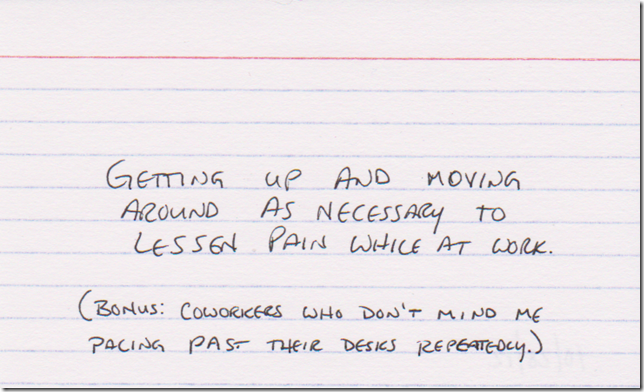 GETTING UP AND MOVING
AROUND AS NECESSARY TO
LESSEN PAIN WHILE AT WORK.
(BONUS: COWORKERS WHO DON'T MIND ME
PACING PAST THEIR DESKS REPEATEDLY.)